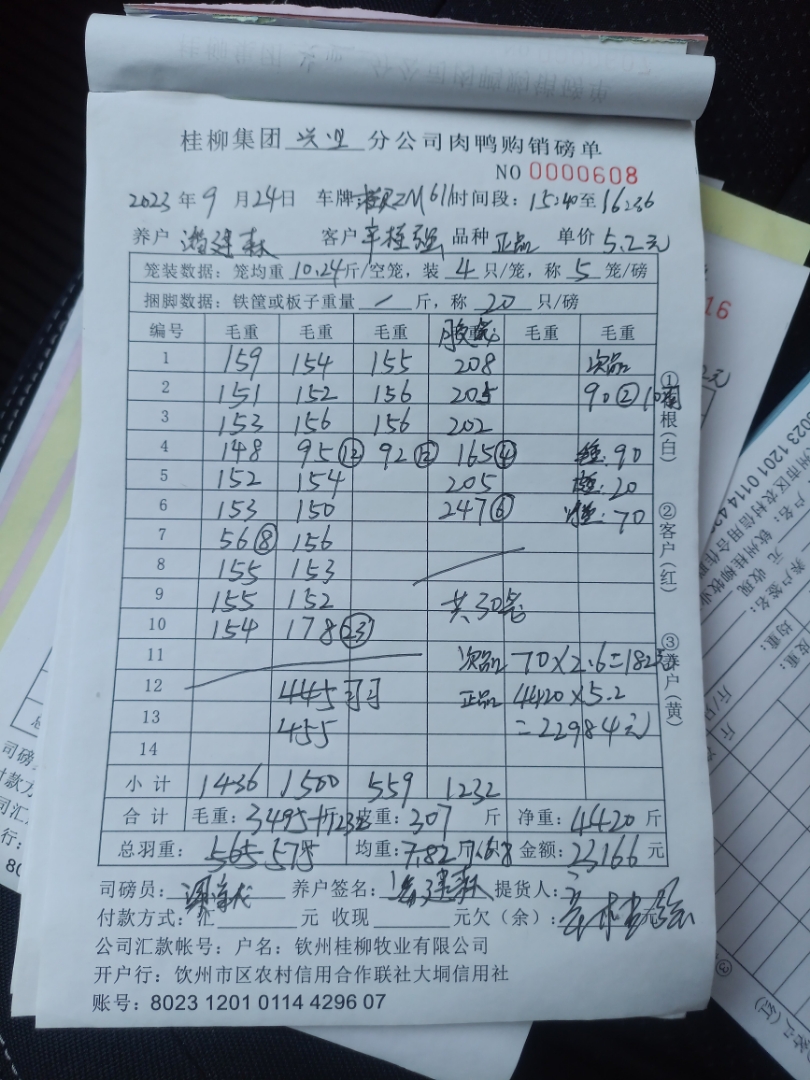 桂柳集团 兴业 分公司肉鸭购销磅单
NO 0000608
2023 年 9 月 24 日 车牌 ZM61 时间段: 15:40 至 16:36
养户 潘建森 客户 辛桂强 品种 正品 单价 5.2元
笼装数据: 笼均重 10.24 斤/空笼, 装 4 只/笼, 称 5 笼/磅
捆脚数据: 铁筐或板子重量 / 斤, 称 20 只/磅
编号 毛重 毛重 毛重 毛重 毛重
1 159 154 155 208 次品
2 151 152 156 205 90②
3 153 156 156 202
4 148 95⑫ 92⑫ 165④ 90
5 152 154 205 20
6 153 150 247⑥ 70
7 56⑧ 156
8 155 153
9 155 152 共30笼
10 154 178㉓
11 次品 70×2.6=182元
12 445 正品 4420×5.2
13 455 =22984元
14
小计 1436 1500 559 1232
合计 毛重: 3495+1232 皮重: 307 斤 净重: 4420 斤
总羽重: 565 575 均重: 7.82 斤/只 金额: 23166 元
司磅员: 养户签名: 潘建森 提货人:
付款方式: 汇 元 收现 元欠(余):
公司汇款帐号: 户名: 钦州桂柳牧业有限公司
开户行: 钦州市区农村信用合作联社大垌信用社
账号: 8023 1201 0114 4296 07
①根(白)
②客户(红)
③养户(黄)